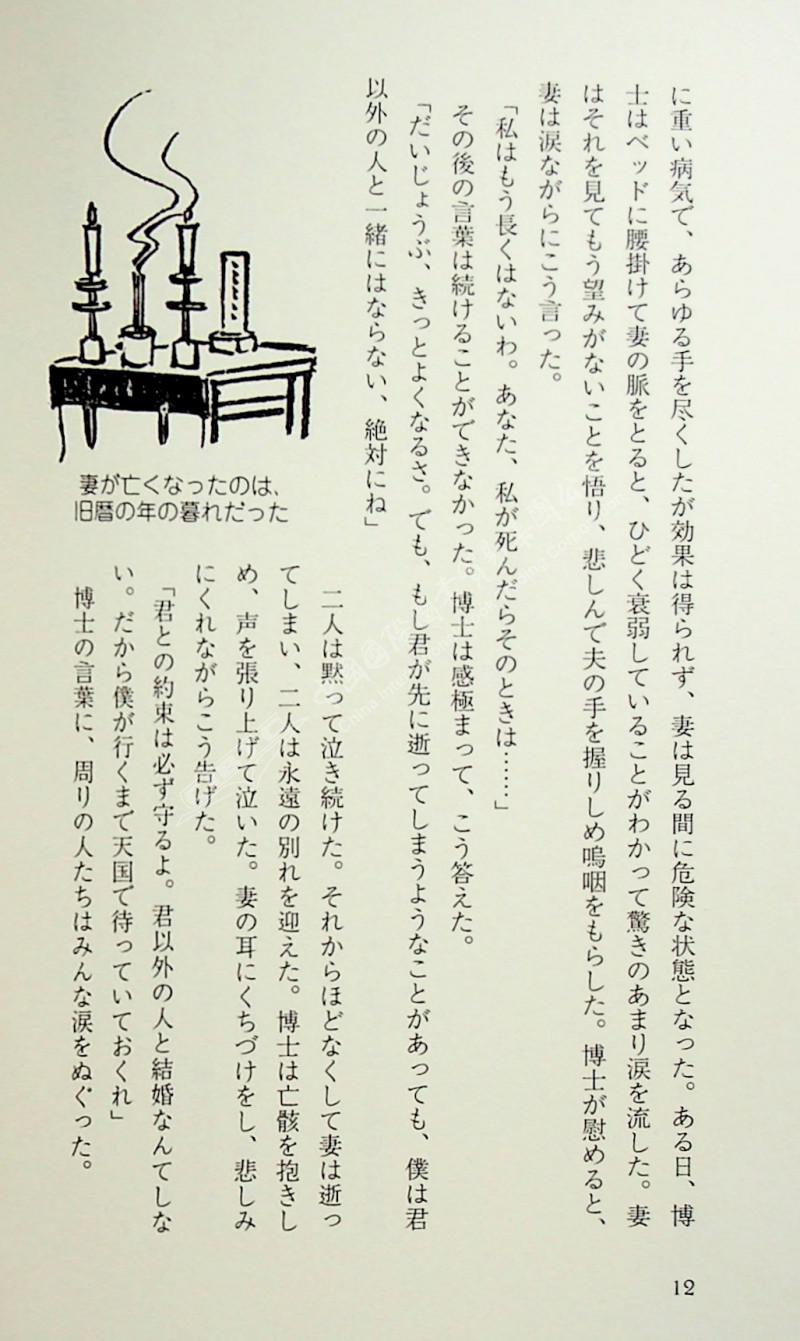 に重い病気で、あらゆる手を尽くしたが効果は得られず、妻は見る間に危険な状態となった。ある日、博
士はベッドに腰掛けて妻の脈をとると、ひどく衰弱していることがわかって驚きのあまり涙を流した。妻
はそれを見てもう望みがないことを悟り、悲しんで夫の手を握りしめ嗚咽をもらした。博士が慰めると、
妻は涙ながらにこう言った。
「私はもう長くはないわ。あなた、私が死んだらそのときは……」
その後の言葉は続けることができなかった。博士は感極まって、こう答えた。
「だいじょうぶ、きっとよくなるさ。でも、もし君が先に逝ってしまうようなことがあっても、僕は君
以外の人と一緒にはならない、絶対にね」
二人は黙って泣き続けた。それからほどなくして妻は逝っ
てしまい、二人は永遠の別れを迎えた。博士は亡骸を抱きし
め、声を張り上げて泣いた。妻の耳にくちづけをし、悲しみ
にくれながらこう告げた。
「君との約束は必ず守るよ。君以外の人と結婚なんてしな
い。だから僕が行くまで天国で待っていておくれ」
博士の言葉に、周りの人たちはみんな涙をぬぐった。
妻が亡くなったのは、
旧暦の年の暮れだった
12